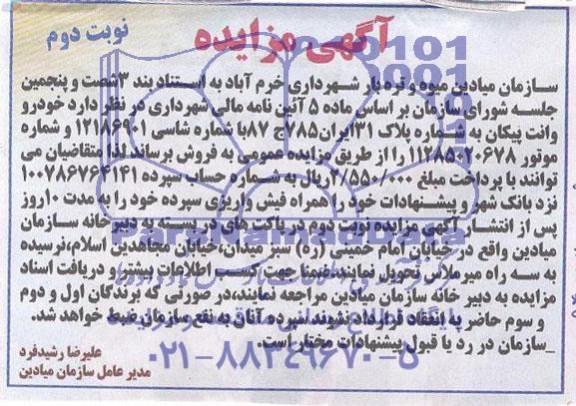 آگهی مزایده
نوبت دوم
سازمان میادین میوه و تره بار شهرداری خرم آباد به استناد بند ۳ شصت و پنجمین
جلسه شورای سازمان بر اساس ماده ۵ آئین نامه مالی شهرداری در نظر دارد خودرو
وانت پیکان به شماره پلاک ۱۳۱ایران۷۸۵ج ۸۷با شماره شاسی ۱۲۱۸۶۹۰۱ و شماره
موتور ۱۱۲۸۵۰۲۰۶۷۸ را از طریق مزایده عمومی به فروش برساند.لذا متقاضیان می
توانند با پرداخت مبلغ ۲/۵۵۰/۰۰۰ریال به شماره حساب سپرده ۱۰۰۷۸۶۷۶۴۱۴۱
نزد بانک شهر و پیشنهادات خود را همراه فیش واریزی سپرده خود را به مدت ۱۰روز
پس از انتشار آگهی مزایده نوبت دوم در پاکت های در بسته به دبیرخانه سازمان
میادین واقع در خیابان امام خمینی (ره) سبز میدان،خیابان مجاهدین اسلام،نرسیده
به سه راه میرملاس تحویل نمایند.ضمنا جهت کسب اطلاعات بیشتر و دریافت اسناد
مزایده به دبیر خانه سازمان میادین مراجعه نمایند،در صورتی که برندگان اول و دوم
و سوم حاضر به انعقاد قرارداد نشوند سپرده آنان به نفع سازمان ضبط خواهد شد.
_سازمان در رد یا قبول پیشنهادات مختار است.
علیرضا رشیدفرد
مدیر عامل سازمان میادین
۰۲۱-۸۸۳۴۹۶۷۰-۵